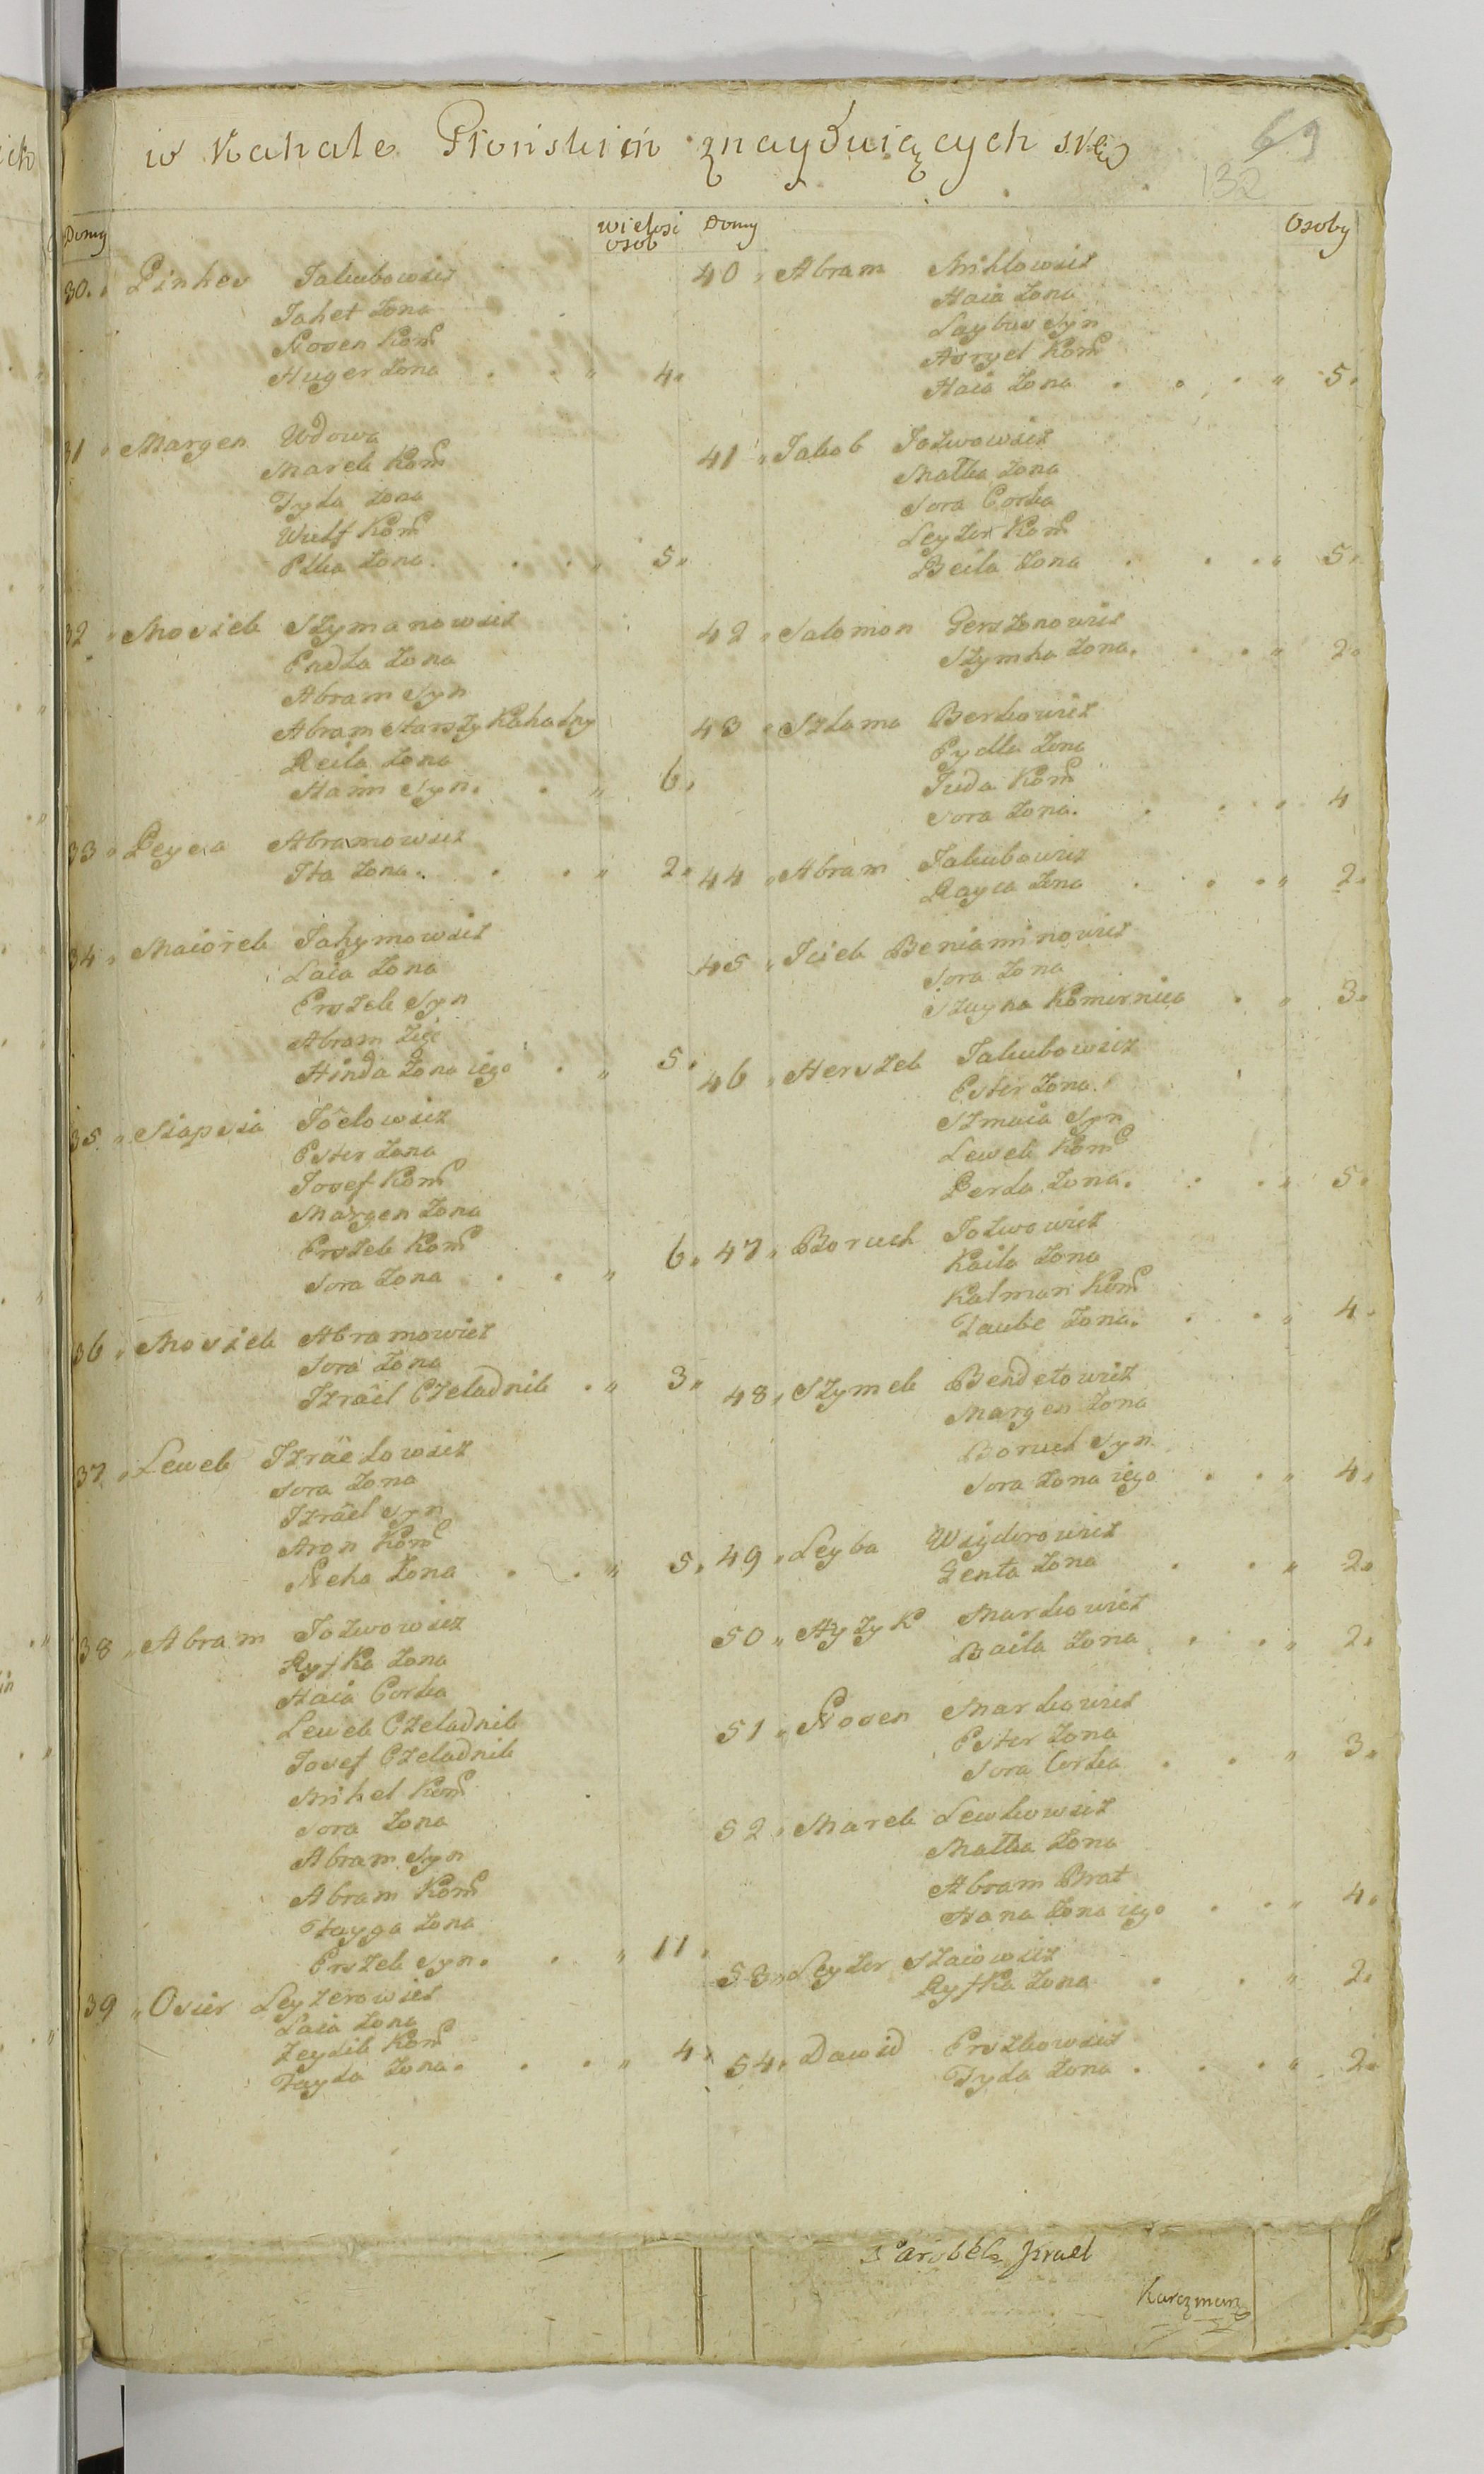 w Kahale Płonskim znayduiących się
69
132
Domy
wielosi osob
30. Pinkes Jakubowicz
Jahet Zona
Nosen Kom
Huger Zona . . " 4.
31 " Margen Wdowa
Marek Kom
Tyla Zona
Wulf Kom
Elka Zona . . . " 5"
32 " Mosiek Szymanowicz
Endla Zona
Abram Syn
Abram Starszy Kahalny
Reila Zona
Haim Syn. . " 6.
33 " Peysa Abramowicz
Ita Zona . . . " 2"
34 " Maiorek Jahymowicz
Laia Zona
Erszek Syn
Abram Zięć
Hinda Zona iego . " 5.
35 " Siapsia Joelowicz
Ester Zona
Josef Kom
Margen Zona
Erszek Kom
Sora Zona . . " 6.
36 " Mosiek Abramowicz
Sora Zona
Izräel Czeladnik . " 3"
37 " Lewek Izräelowicz
Sora Zona
Izräel Syn
Aron Kom
Neha Zona . . " 5.
38 " Abram Jozwowicz
Ryfka Zona
Haia Corka
Lewek Czeladnik
Josef Czeladnik
Mihel Kom
Sora Zona
Abram Syn
Abram Kom
Fayga Zona
Erszek Syn. . " 11.
39 " Osier Leyzerowicz
Laia Zona
Zeydik Kom
Fayda Zona. . . " 4.
Domy
Osoby
40 " Abram Mihlowicz
Haia Zona
Laybus Syn
Asryel Kom
Haia Zona . . . " 5.
41 " Jakob Jozwowicz
Malka Zona
Sora Corka
Leyzer Kom
Beila Zona . . . " 5.
42 " Salomon Gerszonowicz
Szymha Zona. . . " 2"
43 " Szlama Berkowicz
Eydla Zona
Juda Kom
Sora Zona. . . . . 4
44 " Abram Jakubowicz
Rayca Zona . . . " 2.
45 " Jciek Beniaminowicz
Sora Zona
Szeyna Komornica . " 3.
46 " Herszek Jakubowicz
Ester Zona.
Szmaia Syn
Lewek Kom
Perla Zona. . . " 5.
47 " Boruch Jozwowicz
Kaila Zona
Kalman Kom
Taube Zona. . . " 4.
48, Szymek Bendetowicz
Margen Zona
Boruch Syn
Sora Zona iego . . " 4.
49 " Leyba Wigdorowicz
Genta Zona . . " 2.
50 " Ayzyk Markowicz
Baila Zona . . " 2.
51 " Nosen Markowicz
Ester Zona
Sora Corka . . " 3.
52 " Marek Lewkowicz
Malka Zona
Abram Brat
Hana Zona iego . . " 4.
53 " Leyzer Szaiowicz
Ryfka Zona . . " 2.
54. Dawid Erszkowicz
Tyla Zona . . . " 2.
Parobek Jzrael
Karczmarz